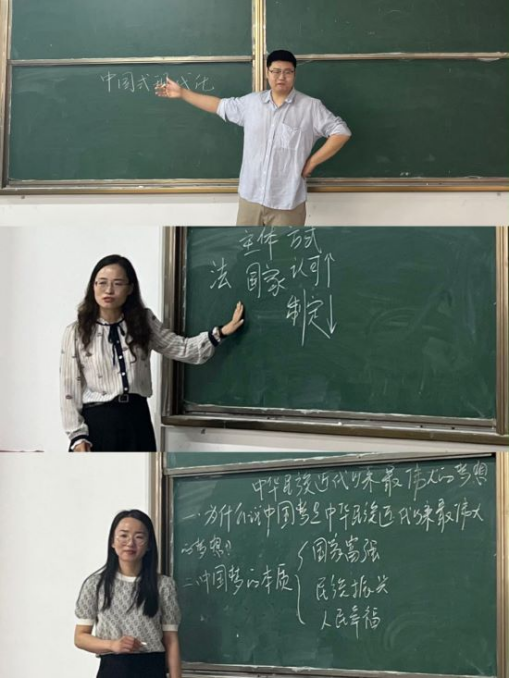 中国式现代化
主体 方式
法 国家 认可↑
制定↓
中华民族近代以来最伟大的梦想
一.为什么说中国梦是中华民族近代以来最伟大
的梦想?
二.中国梦的本质
国家富强
民族振兴
人民幸福